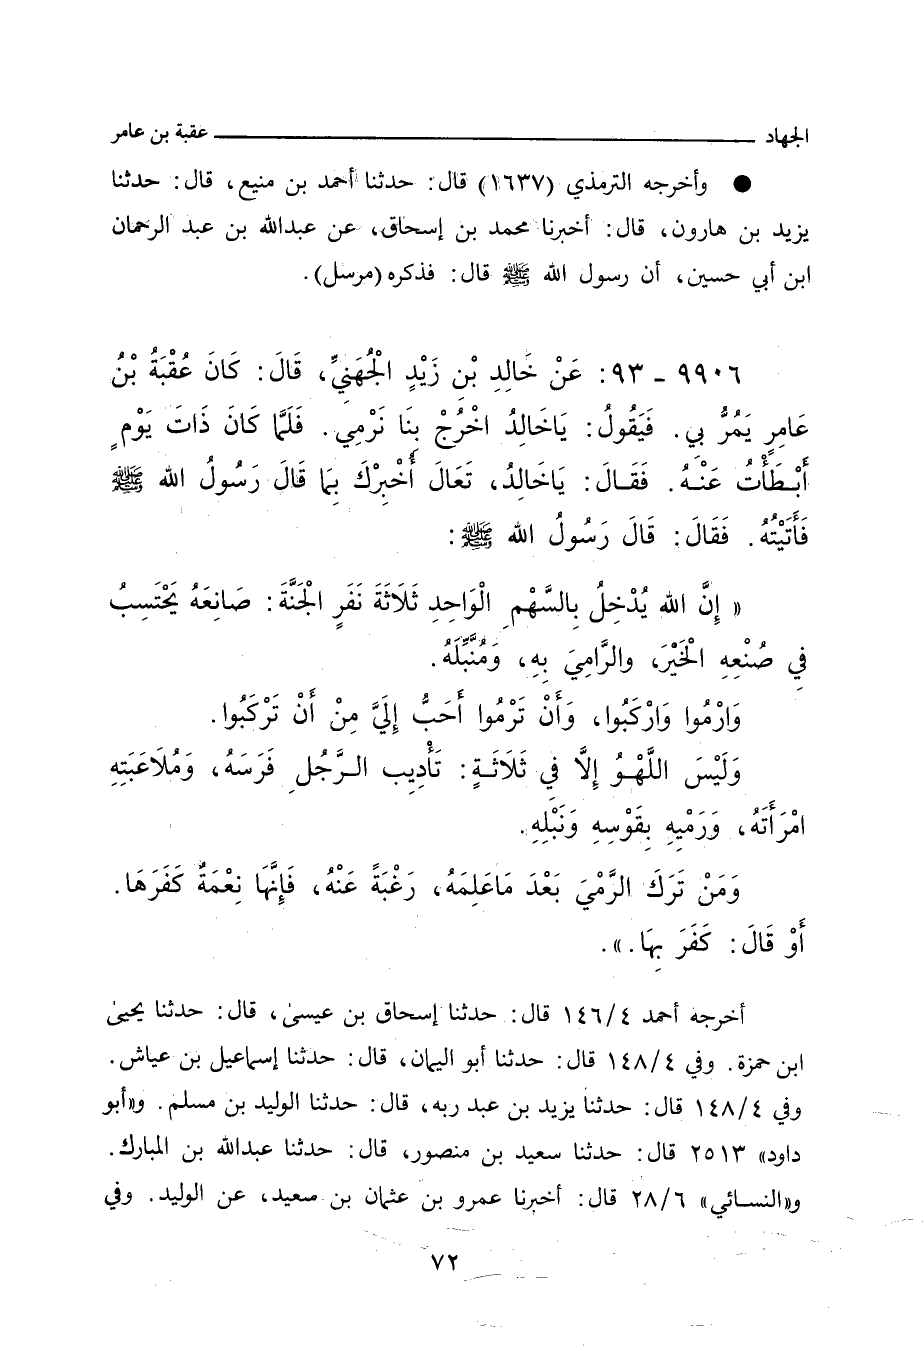 الجهاد ــــــــــــــــ عقبة بن عامر
● وأخرجه الترمذي (١٦٣٧) قال: حدثنا أحمد بن منيع، قال: حدثنا
يزيد بن هارون، قال: أخبرنا محمد بن إسحاق، عن عبدالله بن عبد الرحمان
ابن أبي حسين، أن رسول الله ﷺ قال: فذكره (مرسل).
٩٩٠٦ - ٩٣: عَنْ خَالِدِ بْنِ زَيْدٍ الْجُهَنِيِّ، قَالَ: كَانَ عُقْبَةُ بْنُ
عَامِرٍ يَمُرُّ بِي. فَيَقُولُ: يَاخَالِدُ اخْرُجْ بِنَا نَرْمِي. فَلَمَّا كَانَ ذَاتَ يَوْمٍ
أَبْطَأْتُ عَنْهُ. فَقَالَ: يَاخَالِدُ، تَعَالَ أُخْبِرْكَ بِمَا قَالَ رَسُولُ الله ﷺ
فَأَتَيْتُهُ. فَقَالَ: قَالَ رَسُولُ الله ﷺ:
« إِنَّ الله يُدْخِلُ بِالسَّهْمِ الْوَاحِدِ ثَلَاثَةَ نَفَرٍ الْجَنَّةَ: صَانِعَهُ يَحْتَسِبُ
فِي صُنْعِهِ الْخَيْرَ، والرَّامِيَ بِهِ، وَمُنَبِّلَهُ.
وَارْمُوا وَارْكَبُوا، وَأَنْ تَرْمُوا أَحَبُّ إِلَيَّ مِنْ أَنْ تَرْكَبُوا.
وَلَيْسَ اللَّهْوُ إِلَّا فِي ثَلَاثَةٍ: تَأْدِيبِ الرَّجُلِ فَرَسَهُ، وَمُلَاعَبَتِهِ
امْرَأَتَهُ، وَرَمْيِهِ بِقَوْسِهِ وَنَبْلِهِ.
وَمَنْ تَرَكَ الرَّمْيَ بَعْدَ مَاعَلِمَهُ، رَغْبَةً عَنْهُ، فَإِنَّهَا نِعْمَةٌ كَفَرَهَا.
أَوْ قَالَ: كَفَرَ بِهَا.».
أخرجه أحمد ١٤٦/٤ قال: حدثنا إسحاق بن عيسىٰ، قال: حدثنا يحيىٰ
ابن حمزة. وفي ١٤٨/٤ قال: حدثنا أبو اليمان، قال: حدثنا إسماعيل بن عياش.
وفي ١٤٨/٤ قال: حدثنا يزيد بن عبد ربه، قال: حدثنا الوليد بن مسلم. و«أبو
داود» ٢٥١٣ قال: حدثنا سعيد بن منصور، قال: حدثنا عبدالله بن المبارك.
و«النسائي» ٢٨/٦ قال: أخبرنا عمرو بن عثمان بن سعيد، عن الوليد. وفي
٧٢